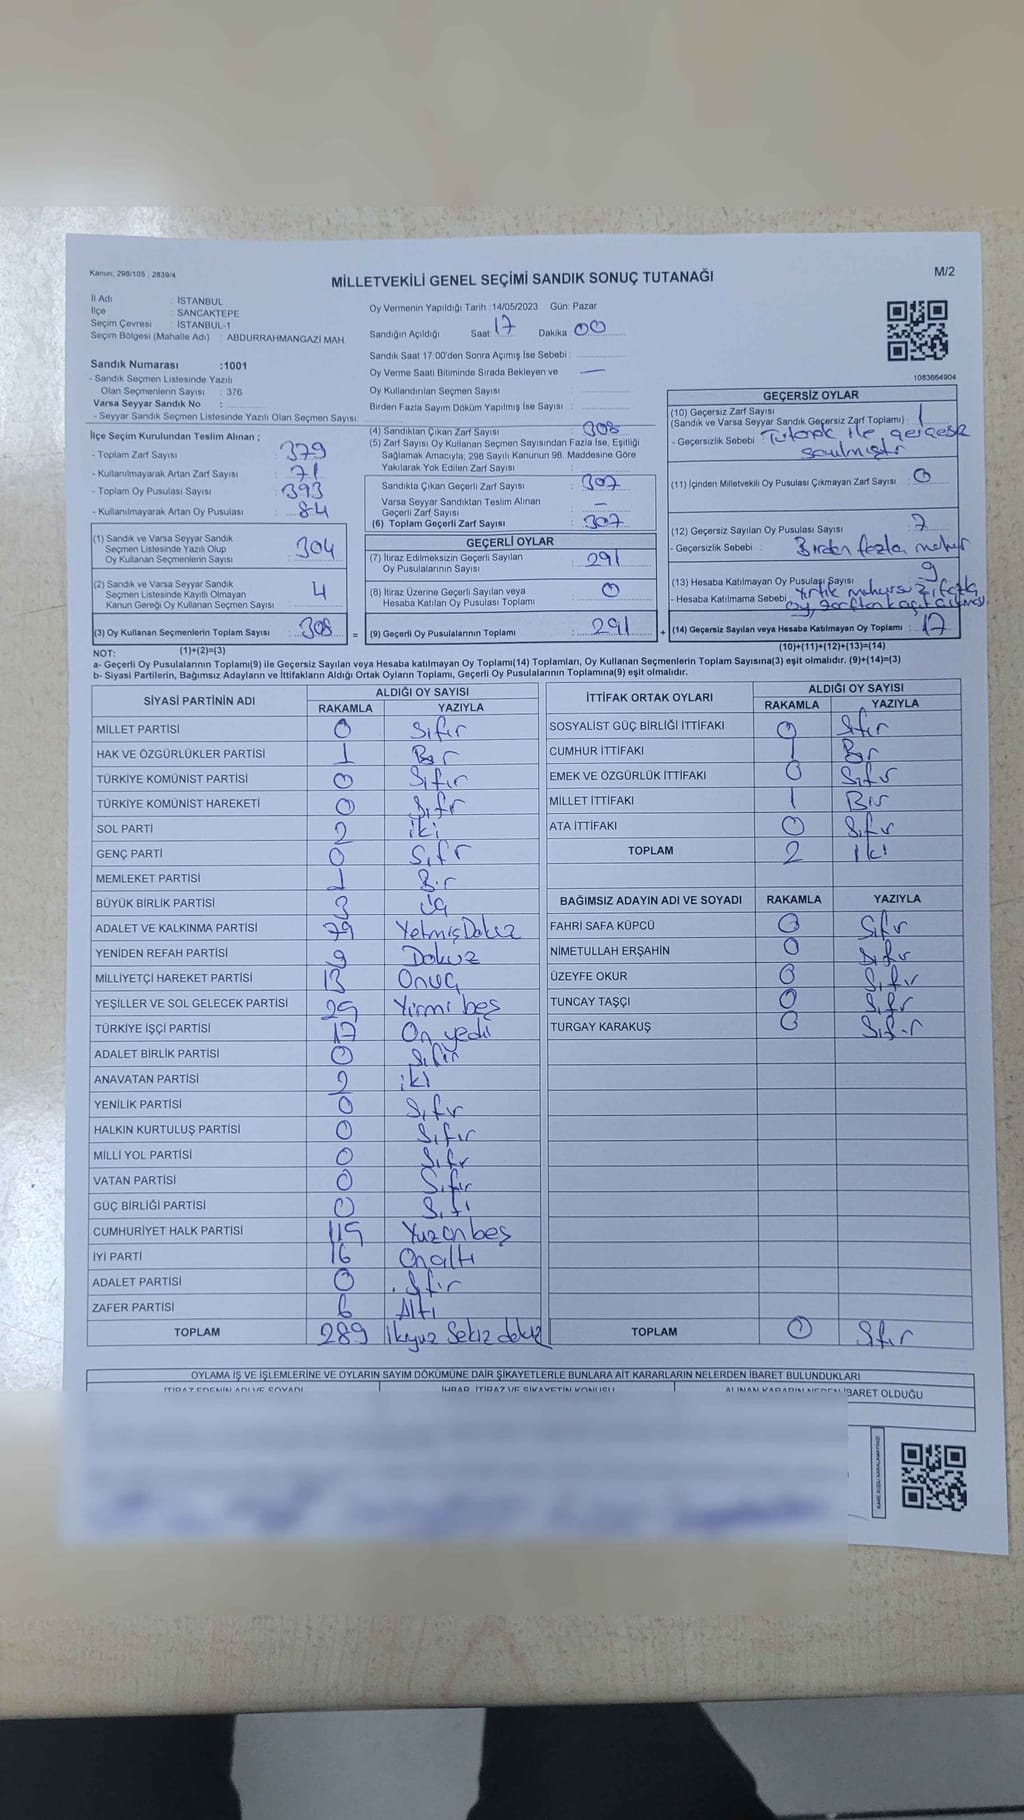 Kanun, 298/105 , 2839/4
MİLLETVEKİLİ GENEL SEÇİMİ SANDIK SONUÇ TUTANAĞI
M/2
İl Adı : İSTANBUL
İlçe : SANCAKTEPE
Seçim Çevresi : İSTANBUL-1
Seçim Bölgesi (Mahalle Adı) : ABDURRAHMANGAZİ MAH.
Sandık Numarası :1001
- Sandık Seçmen Listesinde Yazılı
Olan Seçmenlerin Sayısı : 376
Varsa Seyyar Sandık No :
- Seyyar Sandık Seçmen Listesinde Yazılı Olan Seçmen Sayısı:
Oy Vermenin Yapıldığı Tarih :14/05/2023 Gün: Pazar
Sandığın Açıldığı Saat: 17 Dakika : 00
Sandık Saat 17:00'den Sonra Açımış İse Sebebi :
Oy Verme Saati Bitiminde Sırada Bekleyen ve —
Oy Kullandırılan Seçmen Sayısı :
Birden Fazla Sayım Döküm Yapılmış İse Sayısı :
1083664904
İlçe Seçim Kurulundan Teslim Alınan ;
- Toplam Zarf Sayısı : 379
- Kullanılmayarak Artan Zarf Sayısı : 71
- Toplam Oy Pusulası Sayısı : 393
- Kullanılmayarak Artan Oy Pusulası : 84
(1) Sandık ve Varsa Seyyar Sandık
Seçmen Listesinde Yazılı Olup
Oy Kullanan Seçmenlerin Sayısı : 304
(2) Sandık ve Varsa Seyyar Sandık
Seçmen Listesinde Kayıtlı Olmayan
Kanun Gereği Oy Kullanan Seçmen Sayısı : 4
(3) Oy Kullanan Seçmenlerin Toplam Sayısı : 308
(4) Sandıktan Çıkan Zarf Sayısı : 308
(5) Zarf Sayısı Oy Kullanan Seçmen Sayısından Fazla İse, Eşitliği
Sağlamak Amacıyla, 298 Sayılı Kanunun 98. Maddesine Göre
Yakılarak Yok Edilen Zarf Sayısı :
Sandıkta Çıkan Geçerli Zarf Sayısı : 307
Varsa Seyyar Sandıktan Teslim Alınan
Geçerli Zarf Sayısı : —
(6) Toplam Geçerli Zarf Sayısı : 307
GEÇERLİ OYLAR
(7) İtiraz Edilmeksizin Geçerli Sayılan
Oy Pusulalarının Sayısı : 291
(8) İtiraz Üzerine Geçerli Sayılan veya
Hesaba Katılan Oy Pusulası Toplamı : 0
= (9) Geçerli Oy Pusulalarının Toplamı : 291 +
GEÇERSİZ OYLAR
(10) Geçersiz Zarf Sayısı
(Sandık ve Varsa Seyyar Sandık Geçersiz Zarf Toplamı) : 1
- Geçersizlik Sebebi : Tutanak ile geçersiz
sayılmıştır
(11) İçinden Milletvekili Oy Pusulası Çıkmayan Zarf Sayısı : 0
(12) Geçersiz Sayılan Oy Pusulası Sayısı : 7
- Geçersizlik Sebebi : Birden fazla mühür
(13) Hesaba Katılmayan Oy Pusulası Sayısı : 9
- Hesaba Katılmama Sebebi : Yırtık
(14) Geçersiz Sayılan veya Hesaba Katılmayan Oy Toplamı : 17
NOT: (1)+(2)=(3) (10)+(11)+(12)+(13)=(14)
a- Geçerli Oy Pusulalarının Toplamı(9) ile Geçersiz Sayılan veya Hesaba katılmayan Oy Toplamı(14) Toplamları, Oy Kullanan Seçmenlerin Toplam Sayısına(3) eşit olmalıdır. (9)+(14)=(3)
b- Siyasi Partilerin, Bağımsız Adayların ve İttifakların Aldığı Ortak Oyların Toplamı, Geçerli Oy Pusulalarının Toplamına(9) eşit olmalıdır.
SİYASİ PARTİNİN ADI ALDIĞI OY SAYISI
RAKAMLA YAZIYLA
MİLLET PARTİSİ 0 Sıfır
HAK VE ÖZGÜRLÜKLER PARTİSİ 1 Bir
TÜRKİYE KOMÜNİST PARTİSİ 0 Sıfır
TÜRKİYE KOMÜNİST HAREKETİ 0 Sıfır
SOL PARTİ 2 iki
GENÇ PARTİ 0 Sıfır
MEMLEKET PARTİSİ 1 Bir
BÜYÜK BİRLİK PARTİSİ 3 Üç
ADALET VE KALKINMA PARTİSİ 79 YetmişDokuz
YENİDEN REFAH PARTİSİ 9 Dokuz
MİLLİYETÇİ HAREKET PARTİSİ 13 Onüç
YEŞİLLER VE SOL GELECEK PARTİSİ 25 Yirmi beş
TÜRKİYE İŞÇİ PARTİSİ 17 On yedi
ADALET BİRLİK PARTİSİ 0 Sıfır
ANAVATAN PARTİSİ 2 iki
YENİLİK PARTİSİ 0 Sıfır
HALKIN KURTULUŞ PARTİSİ 0 Sıfır
MİLLİ YOL PARTİSİ 0 Sıfır
VATAN PARTİSİ 0 Sıfır
GÜÇ BİRLİĞİ PARTİSİ 0 Sıfı
CUMHURİYET HALK PARTİSİ 115 Yüzonbeş
İYİ PARTİ 16 Onaltı
ADALET PARTİSİ 0 Sıfır
ZAFER PARTİSİ 6 Altı
TOPLAM 289 ikiyüz Sekiz dokuz
İTTİFAK ORTAK OYLARI ALDIĞI OY SAYISI
RAKAMLA YAZIYLA
SOSYALİST GÜÇ BİRLİĞİ İTTİFAKI 0 Sıfır
CUMHUR İTTİFAKI 1 Bir
EMEK VE ÖZGÜRLÜK İTTİFAKI 0 Sıfır
MİLLET İTTİFAKI 1 Bir
ATA İTTİFAKI 0 Sıfır
TOPLAM 2 iki
BAĞIMSIZ ADAYIN ADI VE SOYADI RAKAMLA YAZIYLA
FAHRİ SAFA KÜPCÜ 0 Sıfır
NİMETULLAH ERŞAHİN 0 Sıfır
ÜZEYFE OKUR 0 Sıfır
TUNCAY TAŞÇI 0 Sıfır
TURGAY KARAKUŞ 0 Sıfır
TOPLAM 0 Sıfır
OYLAMA İŞ VE İŞLEMLERİNE VE OYLARIN SAYIM DÖKÜMÜNE DAİR ŞİKAYETLERLE BUNLARA AİT KARARLARIN NELERDEN İBARET BULUNDUKLARI
İTİRAZ EDENİN ADI VE SOYADI İHBAR, İTİRAZ VE ŞİKAYETİN KONUSU ALINAN KARARIN NEDEN İBARET OLDUĞU